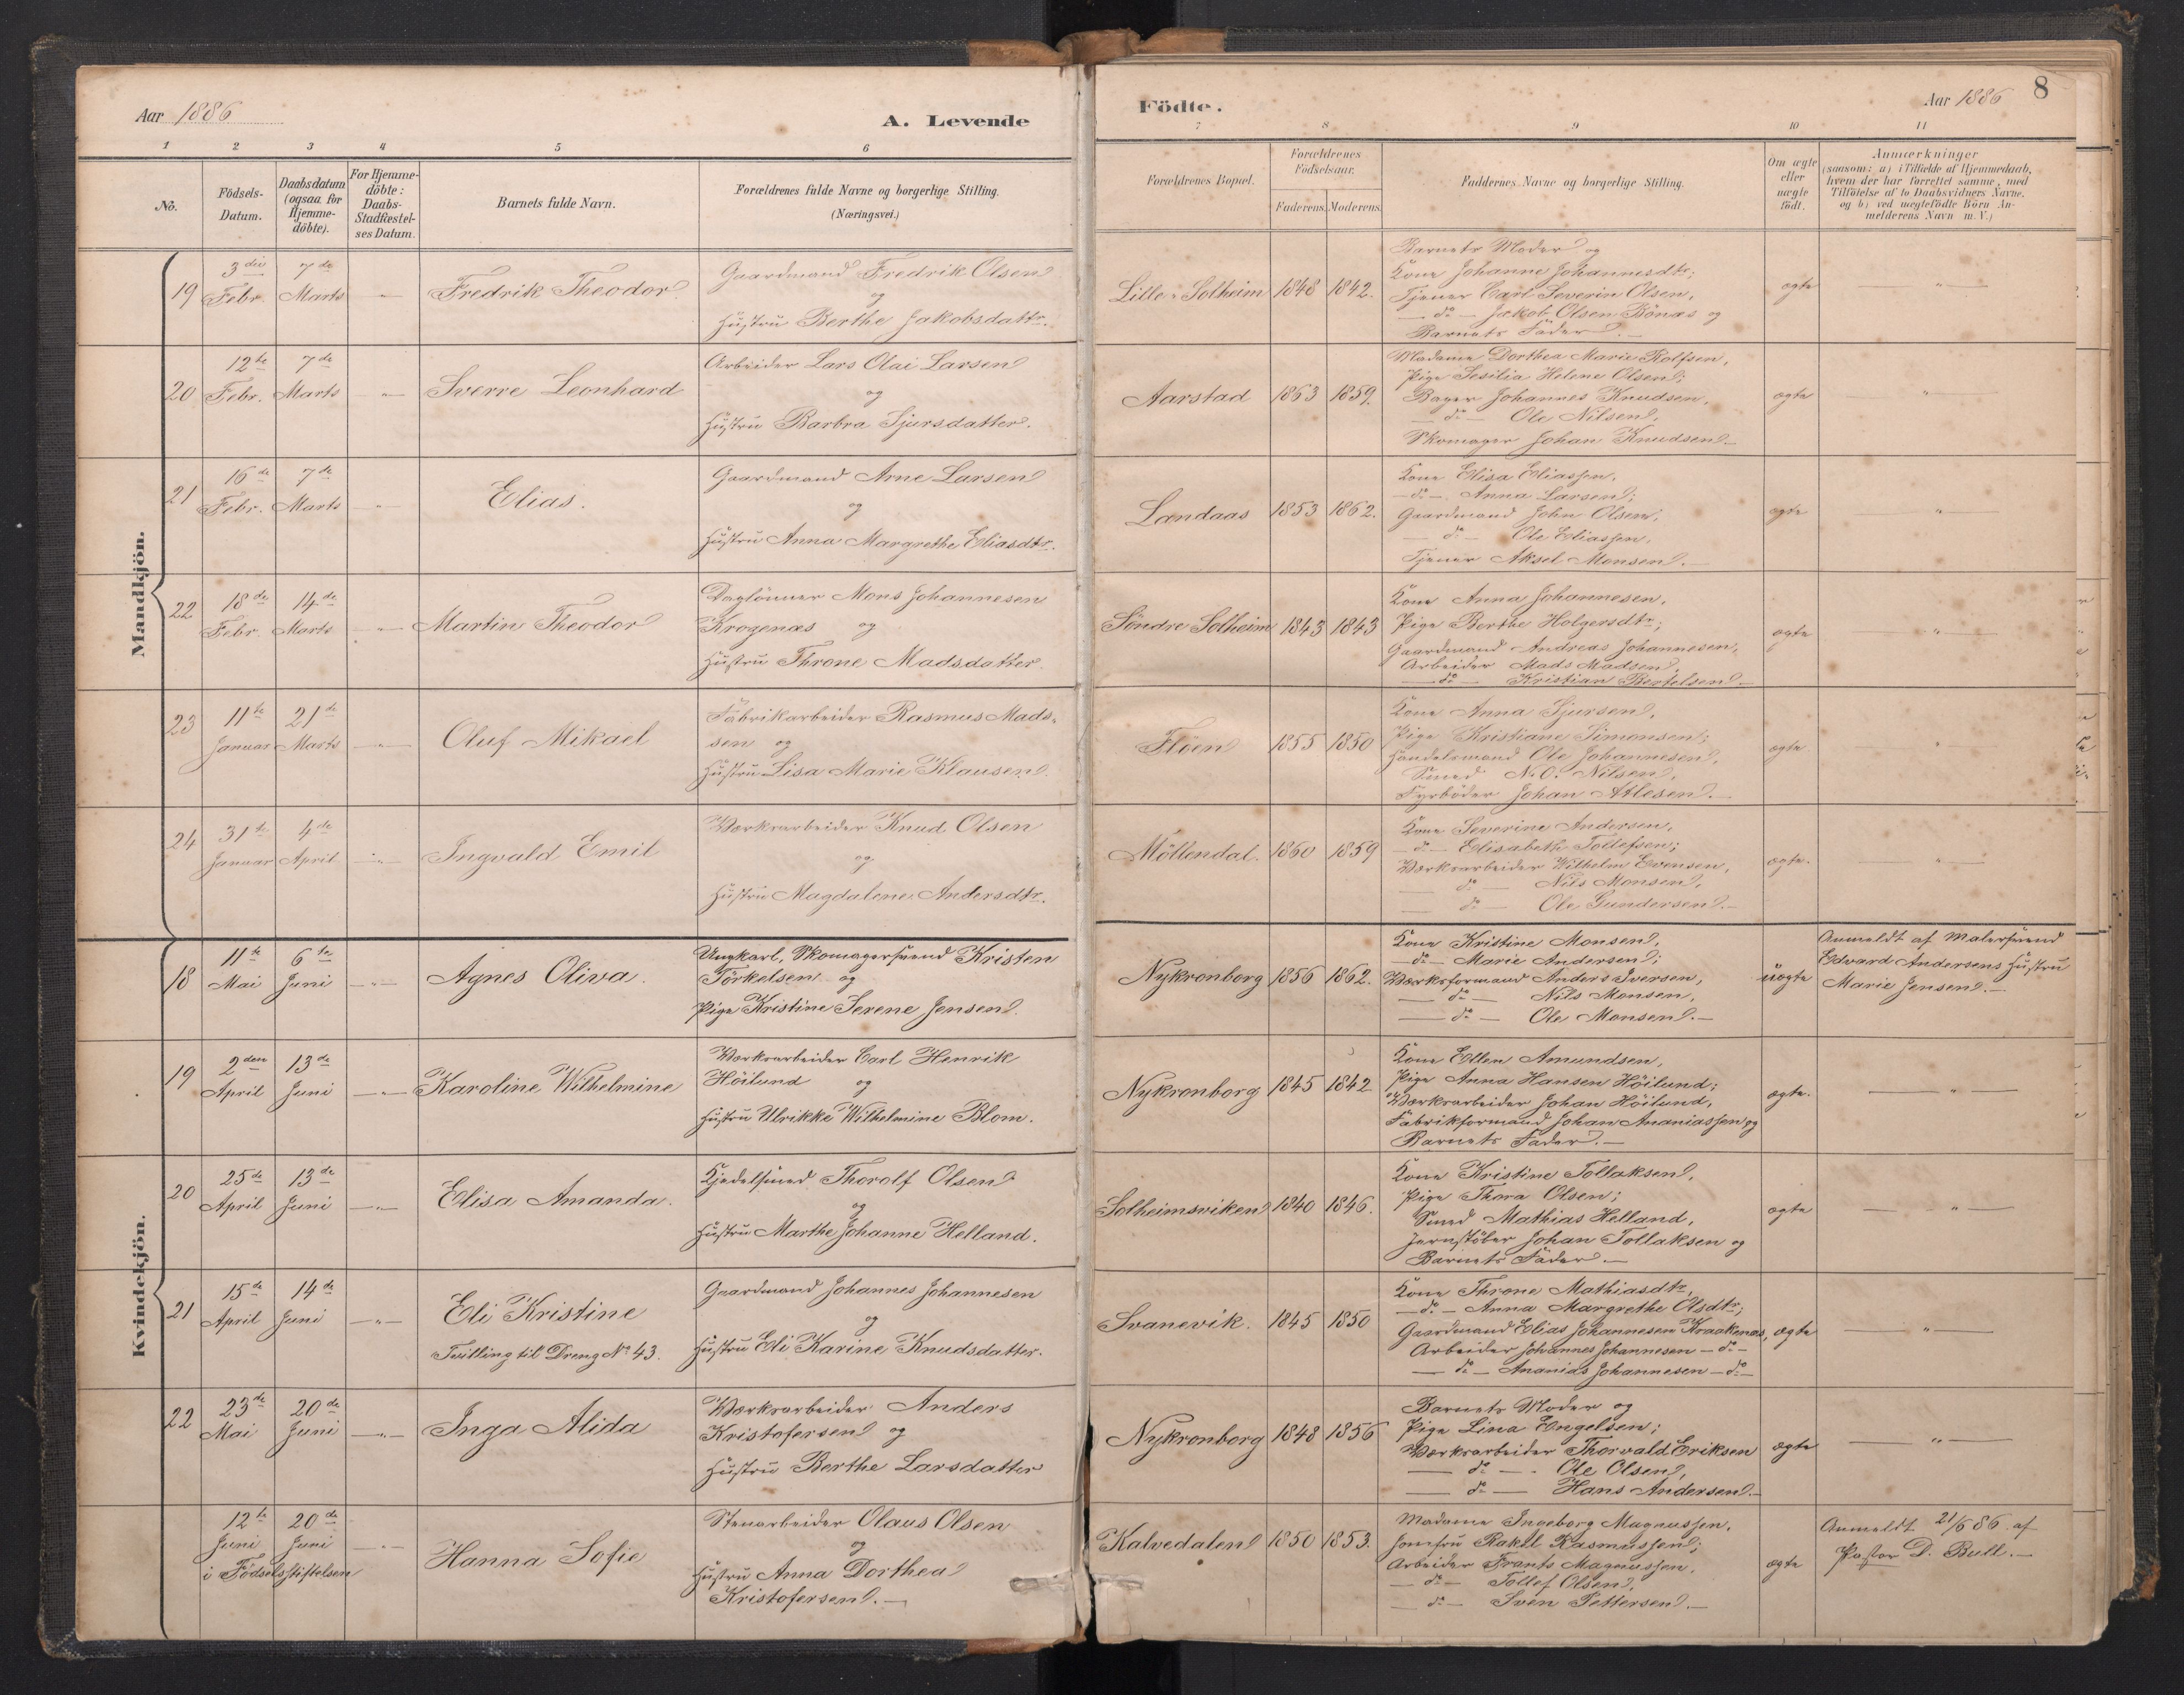 Aar 1886
A. Levende
1 2 3 4 5 6
No.
Födsels-
Datum.
Daabsdatum
(ogsaa for
Hjemme-
döbte).
For Hjemme-
döbte:
Daabs-
Stadfæstel-
ses Datum.
Barnets fulde Navn.
Forældrenes fulde Navne og borgerlige Stilling.
(Næringsvei.)
Mandkjön.
19 3die Febr. 7de Marts — " — Fredrik Theodor.
Gaardmand Fredrik Olsen
og
Hustru Berthe Jakobsdattr.
20 12te Febr. 7de Marts — " — Sverre Leonhard
Arbeider Lars Olai Larsen
og
Hustru Barbra Sjursdatter.
21 16de Febr. 7de Marts — " — Elias.
Gaardmand Arne Larsen
og
Hustru Anna Margrethe Eliasdtr.
22 18de Febr. 14de Marts — " — Martin Theodor
Daglönner Mons Johannesen
Krogenæs og
Hustru Throne Madsdatter.
23 11te Januar 21de Marts — " — Oluf Mikael
Fabrikarbeider Rasmus Mads-
sen og
Hustru Lisa Marie Klausen.
24 31te Januar 4de April — " — Ingvald Emil
Værksarbeider Knud Olsen
og
Hustru Magdalene Andersdtr.
Kvindekjön.
18 11te Mai 6te Juni — " — Agnes Oliva.
Ungkarl, Skomagersvend Kristen
Törkelsen og
Pige Kristine Serene Jensen.
19 2den April 13de Juni — " — Karoline Wilhelmine
Værksarbeider Carl Henrik
Höilund og
Hustru Ulrikke Wilhelmine Blom.
20 25de April 13de Juni — " — Elisa Amanda.
Kjedelsmed Thorolf Olsen
og
Hustru Marthe Johanne Helland.
21 15de April 14de Juni — " — Eli Kristine
Tvilling til Dreng No 43.
Gaardmand Johannes Johannesen
og
Hustru Eli Karine Knudsdatter.
22 23de Mai 20de Juni — " — Inga Alida
Værksarbeider Anders
Kristofersen og
Hustru Berthe Larsdatter
12te Juni 20de Juni — " — Hanna Sofie
i Födselsstiftelsen
Stenarbeider Olaus Olsen
og
Hustru Anna Dorthea
Kristofersen. —
Födte.
Aar 1886
8
7 8 9 10 11
Forældrenes Bopæl.
Forældrenes
Födselsaar.
Faderens. Moderens.
Faddernes Navne og borgerlige Stilling.
Om ægte
eller
uægte
födt.
Anmærkninger
(saasom: a) i Tilfælde af Hjemmedaab,
hvem der har forrettet samme, med
Tilföielse af to Daabsvidners Navne.
og b) ved uægtefödte Börn An-
melderens Navn m. V.)
Lille-Solheim 1848 1842.
Barnets Moder og
Kone Johanne Johannesdtr;
Tjener Carl Severin Olsen,
— do — Jakob Olsen Bönæs og
Barnets Fader. —
ægte — " —
Aarstad 1863 1859.
Madame Dorthea Marie Rolfsen,
Pige Sesilia Helene Olsen;
Bager Johannes Knudsen,
— do — Ole Nilsen,
Skomager Johan Knudsen. —
ægte — " —
Landaas 1853 1862.
Kone Elisa Eliassen,
— do — Anna Larsen;
Gaardmand John Olsen,
— do — Ole Eliassen,
Tjener Aksel Monsen. —
ægte — " —
Söndre Solheim 1843 1843
Kone Anna Johannesen,
Pige Berthe Holgersdtr;
Gaardmand Andreas Johannesen,
Arbeider Mads Madsen,
— do — Kristian Bertelsen. —
ægte — " —
Flöen 1855 1850
Kone Anna Sjursen,
Pige Kristiane Simonsen;
Handelsmand Ole Johannesen,
Smed N. O. Nilsen,
Fyrböder Johan Atlesen. —
ægte — " —
Möllendal. 1860 1859
Kone Severine Andersen,
— do — Elisabeth Tollefsen;
Værksarbeider Wilhelm Evensen,
— do — Nils Monsen,
— do — Ole Gundersen. —
ægte. — " —
Nykronborg 1856 1862.
Kone Kristine Monsen,
— do — Marie Andersen;
Værksformand Anders Iversen,
— do — Nils Monsen,
— do — Ole Monsen. —
uægte
Anmeldt af Malersvend
Edvard Andersens Hustru
Marie Jensen. —
Nykronborg 1845 1842
Kone Ellen Amundsen,
Pige Anna Hansen Höilund;
Værksarbeider Johan Höilund,
Fabrikformand Johan Ananiassen og
Barnets Fader. —
ægte. — " —
Solheimsviken 1840 1846.
Kone Kristine Tollaksen,
Pige Thora Olsen;
Smed Mathias Helland,
Jernstöber Johan Tollaksen og
Barnets Fader. —
ægte — " —
Svanevik. 1845 1850
Kone Throne Mathiasdtr,
— do — Anna Margrethe Olsdtr;
Gaardmand Elias Johannesen Kraakenæs,
Arbeider Johannes Johannesen — do —
— do — Ananias Johannesen — do —
ægte — " —
Nykronborg 1848 1856
Barnets Moder og
Pige Lina Engelsen;
Værksarbeider Thorvald Eriksen
— do — Ole Olsen,
— do — Hans Andersen. —
ægte — " —
Kalvedalen 1850 1853.
Madame Ingeborg Magnussen,
Jomfru Rakel Rasmussen;
Arbeider Frants Magnussen,
— do — Tollef Olsen,
— do — Sven Pettersen. —
ægte
Anmeldt 21/6 86. af
Pastor D. Bull. —